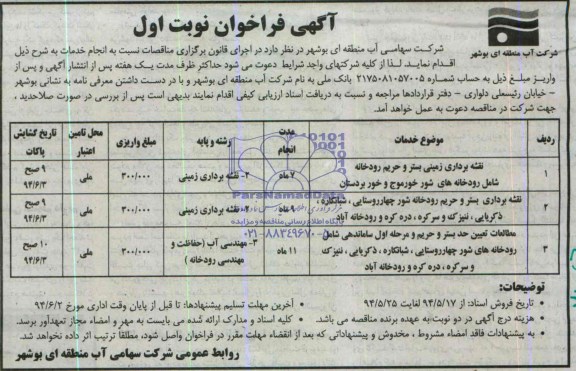 آگهی فراخوان نوبت اول
شرکت آب منطقه ای بوشهر
شرکت سهامی آب منطقه ای بوشهر در نظر دارد در اجرای قانون برگزاری مناقصات نسبت به انجام خدمات به شرح ذیل
اقدام نماید. لذا از کلیه شرکتهای واجد شرایط دعوت می شود حداکثر ظرف مدت یک هفته پس از انتشار آگهی و پس از
واریز مبلغ ذیل به حساب شماره ۲۱۷۵۰۸۱۰۵۷۰۰۵ بانک ملی به نام شرکت آب منطقه ای بوشهر و با در دست داشتن معرفی نامه به نشانی بوشهر
- خیابان رئیسعلی دلواری - دفتر قراردادها مراجعه و نسبت به دریافت اسناد ارزیابی کیفی اقدام نمایند بدیهی است پس از بررسی در صورت صلاحدید ،
جهت شرکت در مناقصه دعوت به عمل خواهد آمد.
ردیف | موضوع خدمات | مدت انجام | رشته و پایه | مبلغ واریزی | محل تامین اعتبار | تاریخ گشایش پاکات
۱ | نقشه برداری زمینی بستر و حریم رودخانه شامل رودخانه های شور خورموج و خور بردستان | ۷ ماه | ۲- نقشه برداری زمینی | ۳۰۰/۰۰۰ | ملی | ۹ صبح ۹۴/۶/۳
۲ | نقشه برداری بستر و حریم رودخانه شور چهارروستایی ، شبانکاره ، ذکریایی ، نیزکه و سرکره ، دره کره و رودخانه آباد | ۹ ماه | ۲- نقشه برداری زمینی | ۳۰۰/۰۰۰ | ملی | ۹ صبح ۹۴/۶/۳
۳ | مطالعات تعیین حد بستر و حریم و مرحله اول ساماندهی شامل رودخانه های شور چهارروستایی ، شبانکاره ، ذکریایی ، نیزکه و سرکره ، دره کره و رودخانه آباد | ۱۱ ماه | ۳- مهندسی آب (حفاظت و مهندسی رودخانه ) | ۳۰۰/۰۰۰ | ملی | ۱۰ صبح ۹۴/۶/۳
ParsNamadData
پایگاه اطلاع رسانی مناقصه و مزایده
۰۲۱-۸۸۳۴۹۶۷۰-۵
توضیحات:
• تاریخ فروش اسناد: از ۹۴/۵/۱۷ لغایت ۹۴/۵/۲۵
• آخرین مهلت تسلیم پیشنهادها: تا قبل از پایان وقت اداری مورخ ۹۴/۶/۲
• هزینه درج آگهی در دو نوبت به عهده برنده مناقصه می باشد.
• کلیه اسناد و مدارک ارائه شده می بایست به مهر و امضاء مجاز تعهدآور برسد.
• به پیشنهادات فاقد امضاء مشروط ، مخدوش و پیشنهاداتی که بعد از انقضاء مهلت مقرر در فراخوان واصل شود، مطلقاً ترتیب اثر داده نخواهد شد.
روابط عمومی شرکت سهامی آب منطقه ای بوشهر